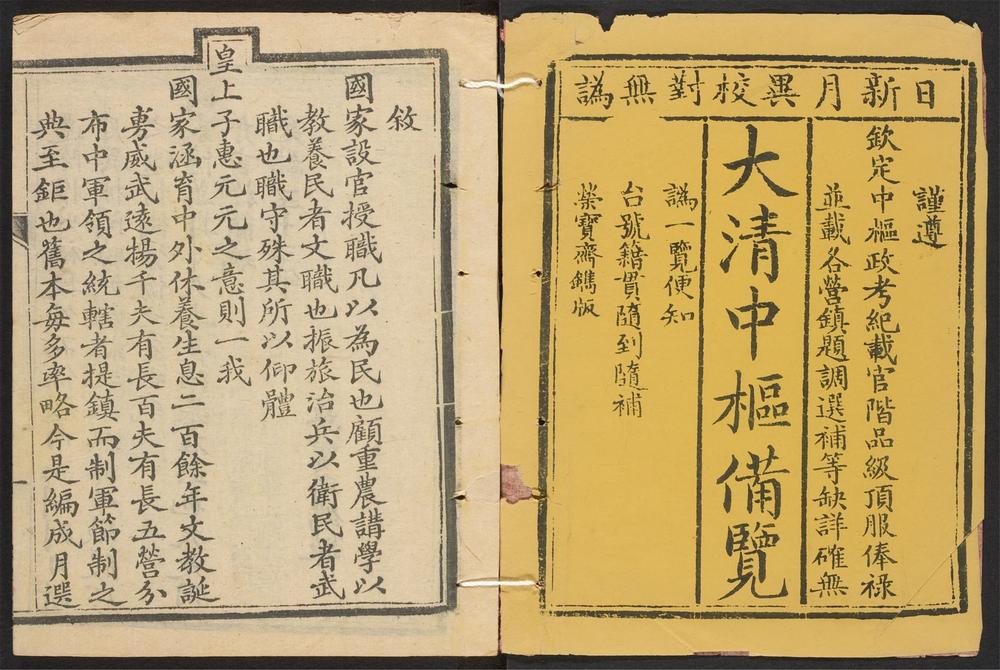 日新月異校對無譌
謹遵
欽定中樞政考紀載官階品級頂服俸祿
並載各營鎮題調選補等缺詳確無
大清中樞備覽
譌一覽便知
台號籍貫隨到隨補
榮寶齋鐫版
敘
國家設官授職凡以為民也顧重農講學以
教養民者文職也振旅治兵以衛民者武
職也職守殊其所以仰體
皇上子惠元元之意則一我
國家涵育中外休養生息二百餘年文教誕
旉威武遠揚千夫有長百夫有長五營分
布中軍領之統轄者提鎮而制軍節制之
典至鉅也舊本每多率略今是編成月選